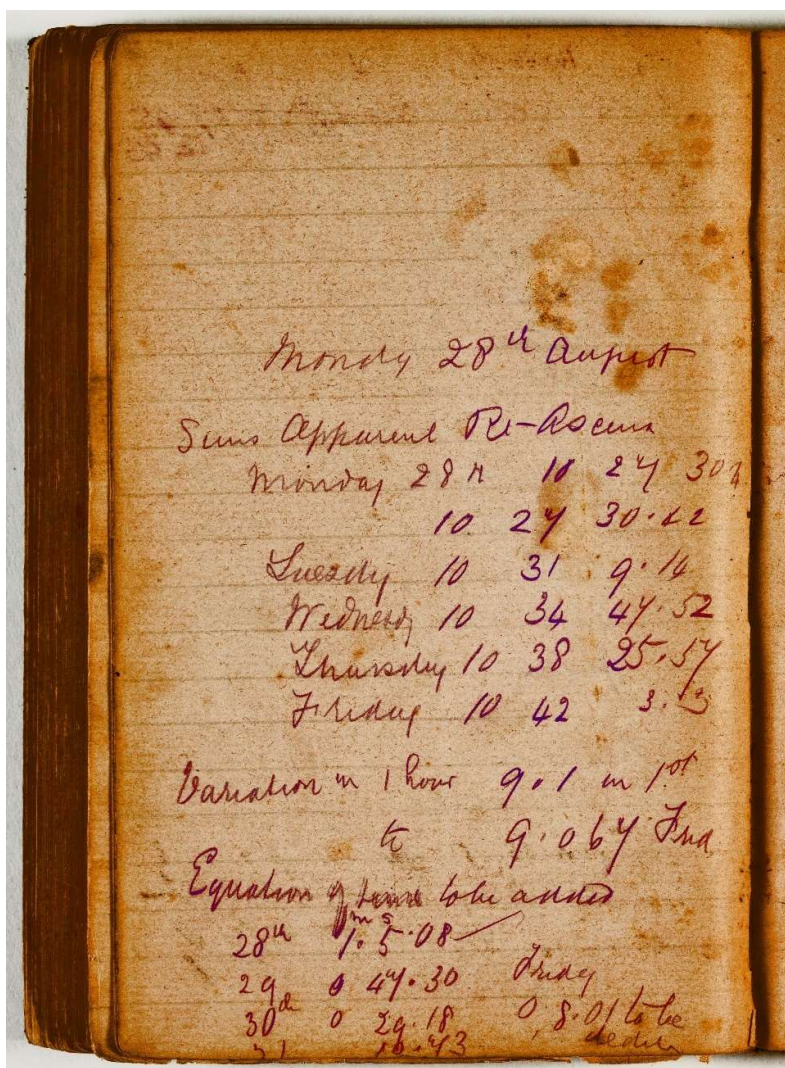 Monday 28th August
Suns Apparent Rt-Ascens
Monday 28th 10 27 30
10 27 30.22
Tuesday 10 31 9.14
Wednesdy 10 34 47.52
Thursday 10 38 25.57
Friday 10 42 3.
Variation in 1 hour 9.1 on 1st
to 9.067 Frid
Equation of time to be added
m s
28th 1. 5.08
29 0 47.30 Friday
30th 0 29.18 0.8.01 to be
31